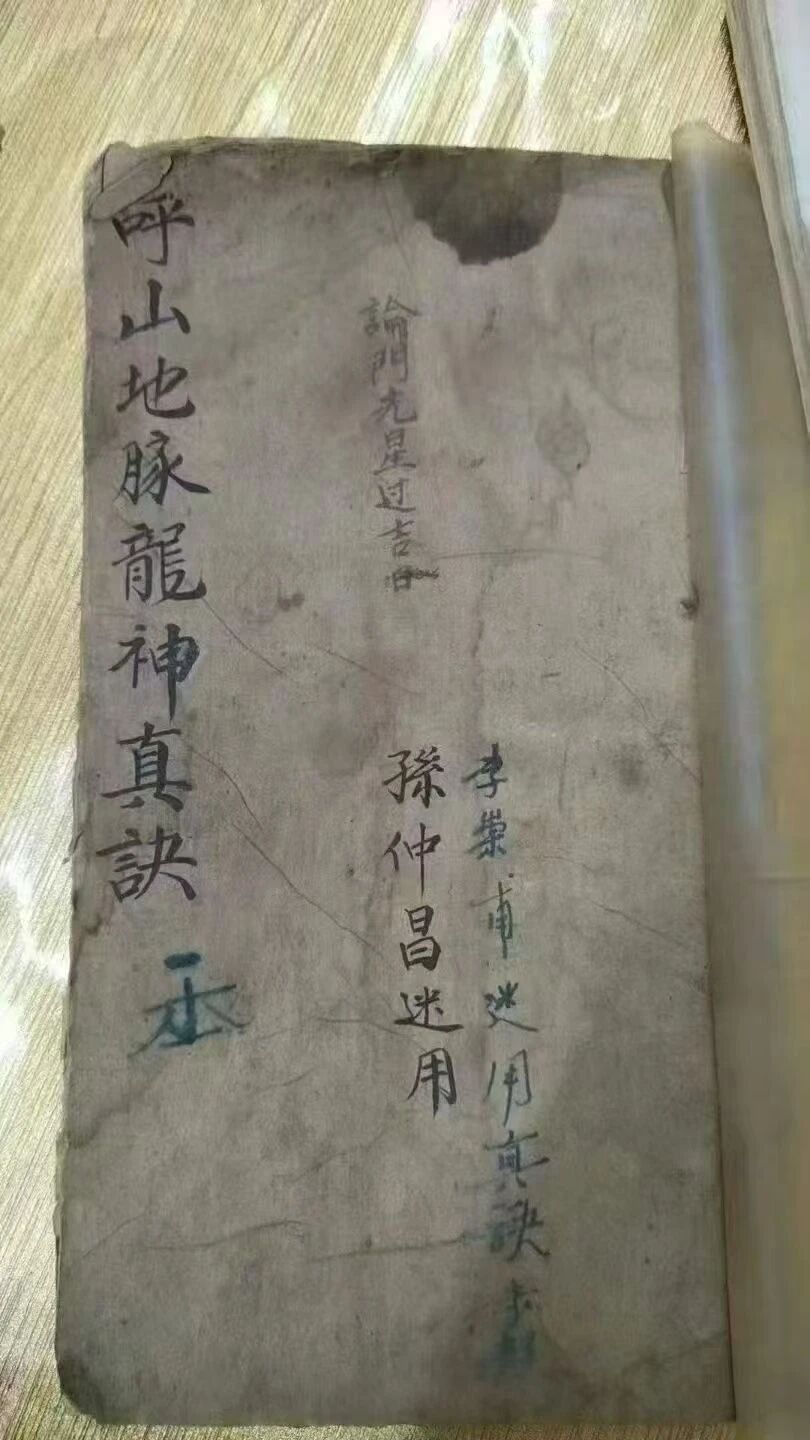 李崇甫迷用真訣
孫仲昌迷用
論門光星过吉日
呼山地脉龍神真訣